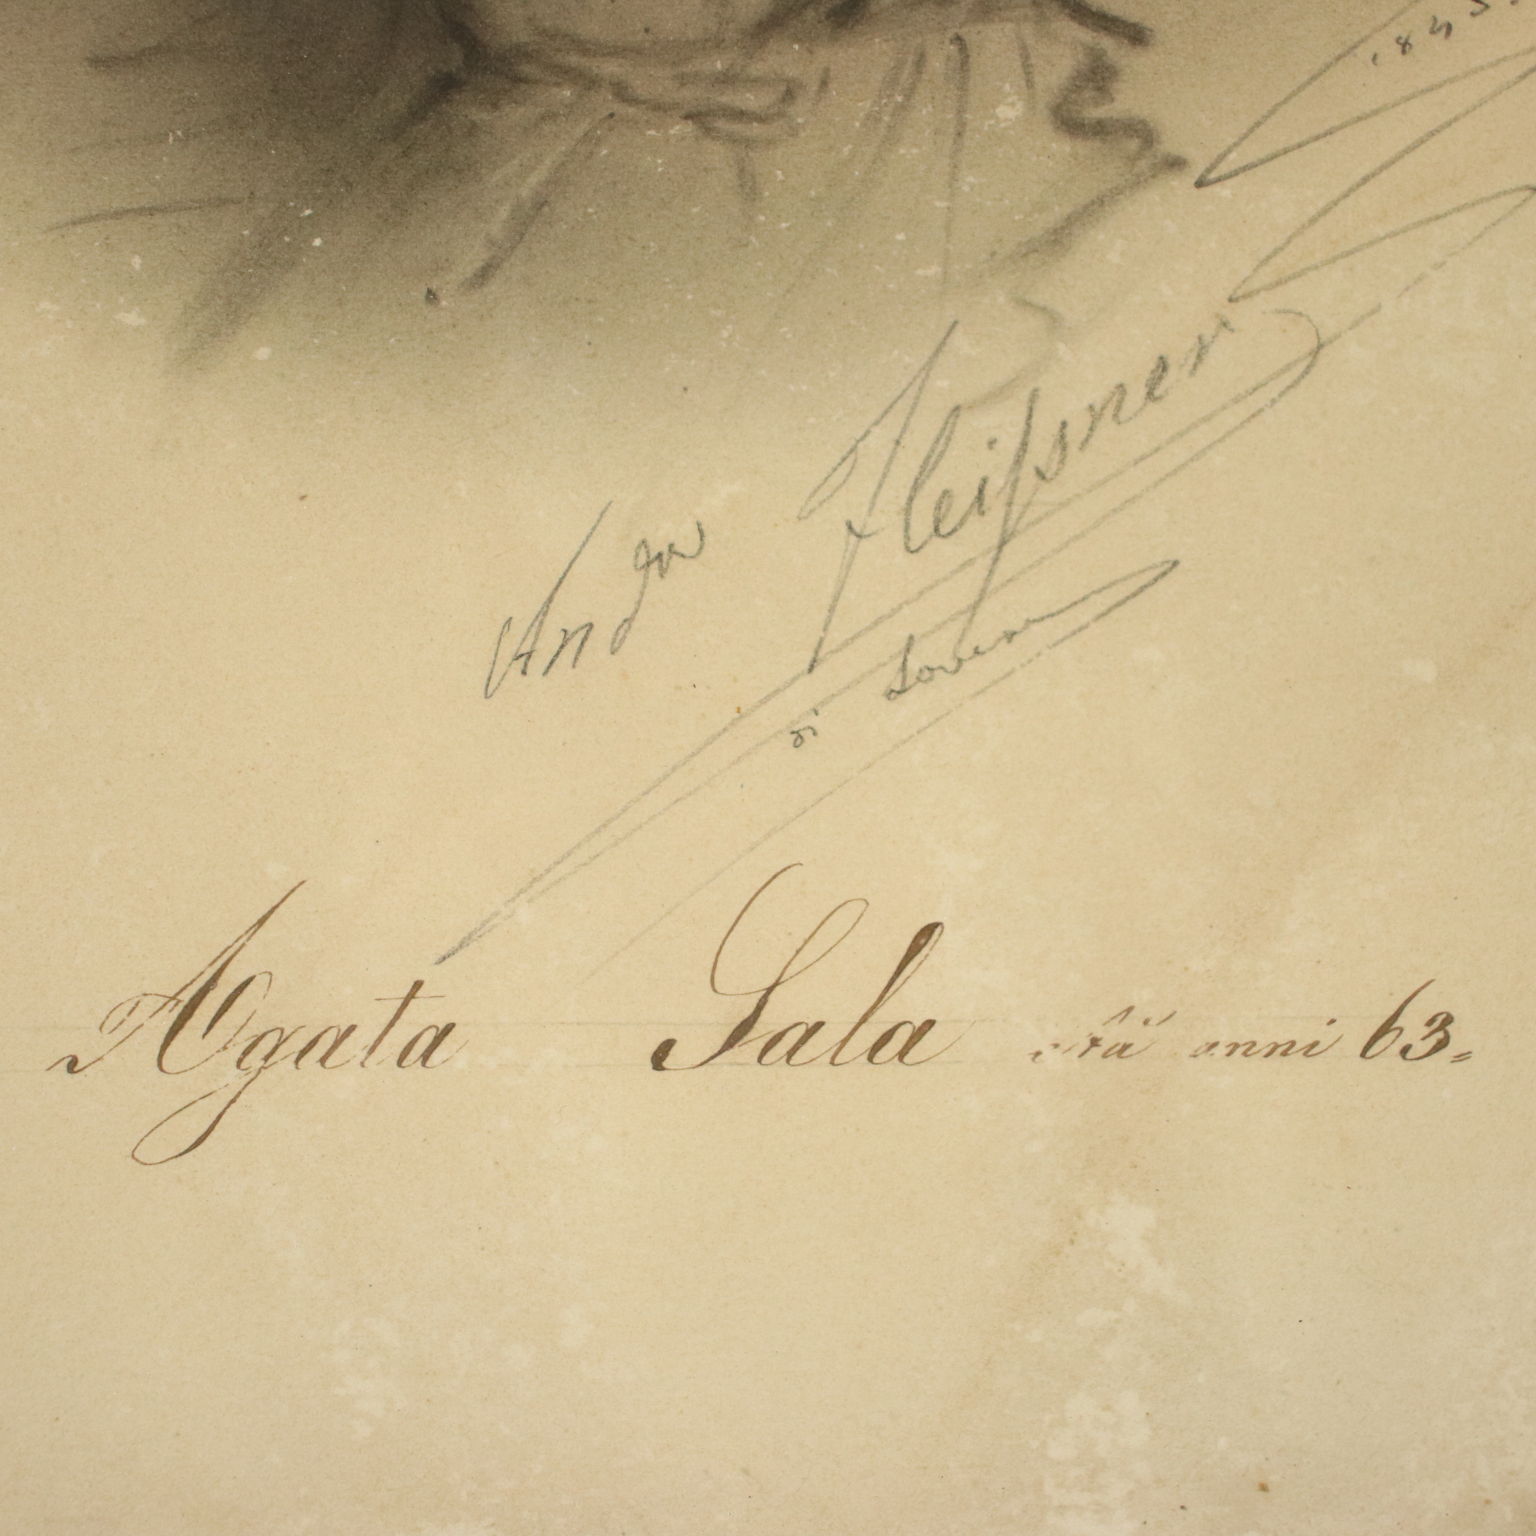 And.a Fleiſsner
di Lovere
Agata Sala
età anni 63.